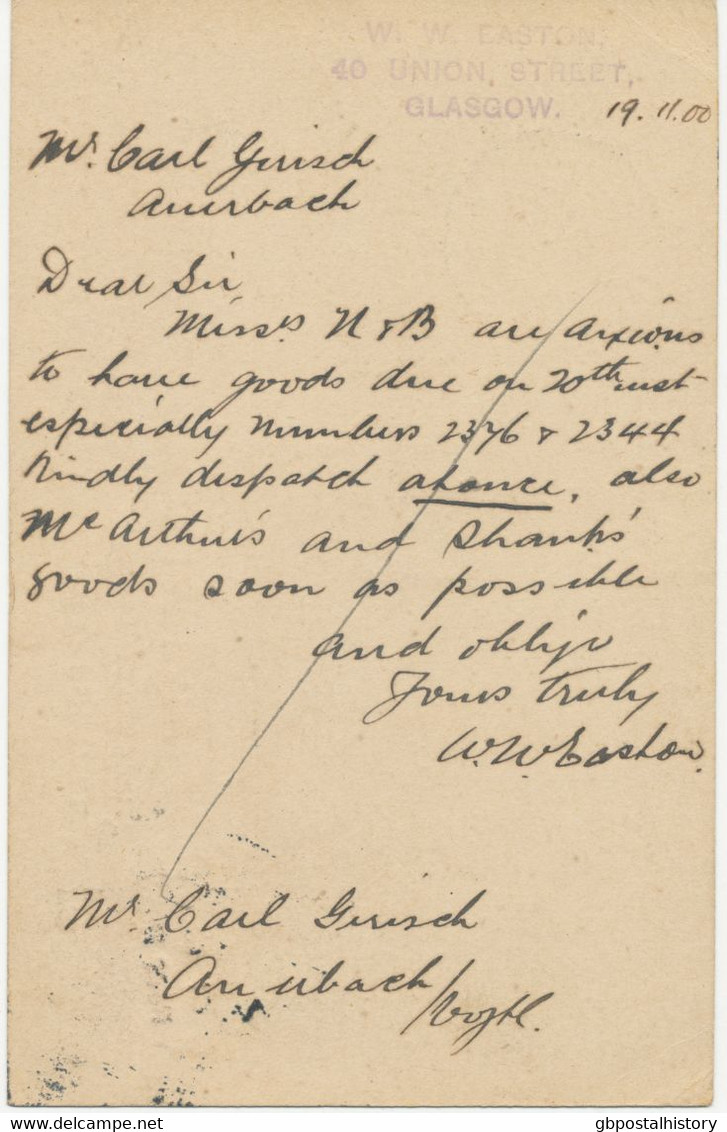 W. W. EASTON,
40 UNION, STREET,
GLASGOW.
19.11.00
Mr. Carl Gerisch
Auerbach
Dear Sir
Messrs N & B are anxious
to have goods due on 20th inst
especially numbers 2376 & 2344
Kindly dispatch atonce, also
McArthur's and Shanks'
goods soon as possible
and oblige
Yours truly
W.W Easton.
Mr Carl Gerisch
Auerbach
/Vogtl.
gbpostalhistory